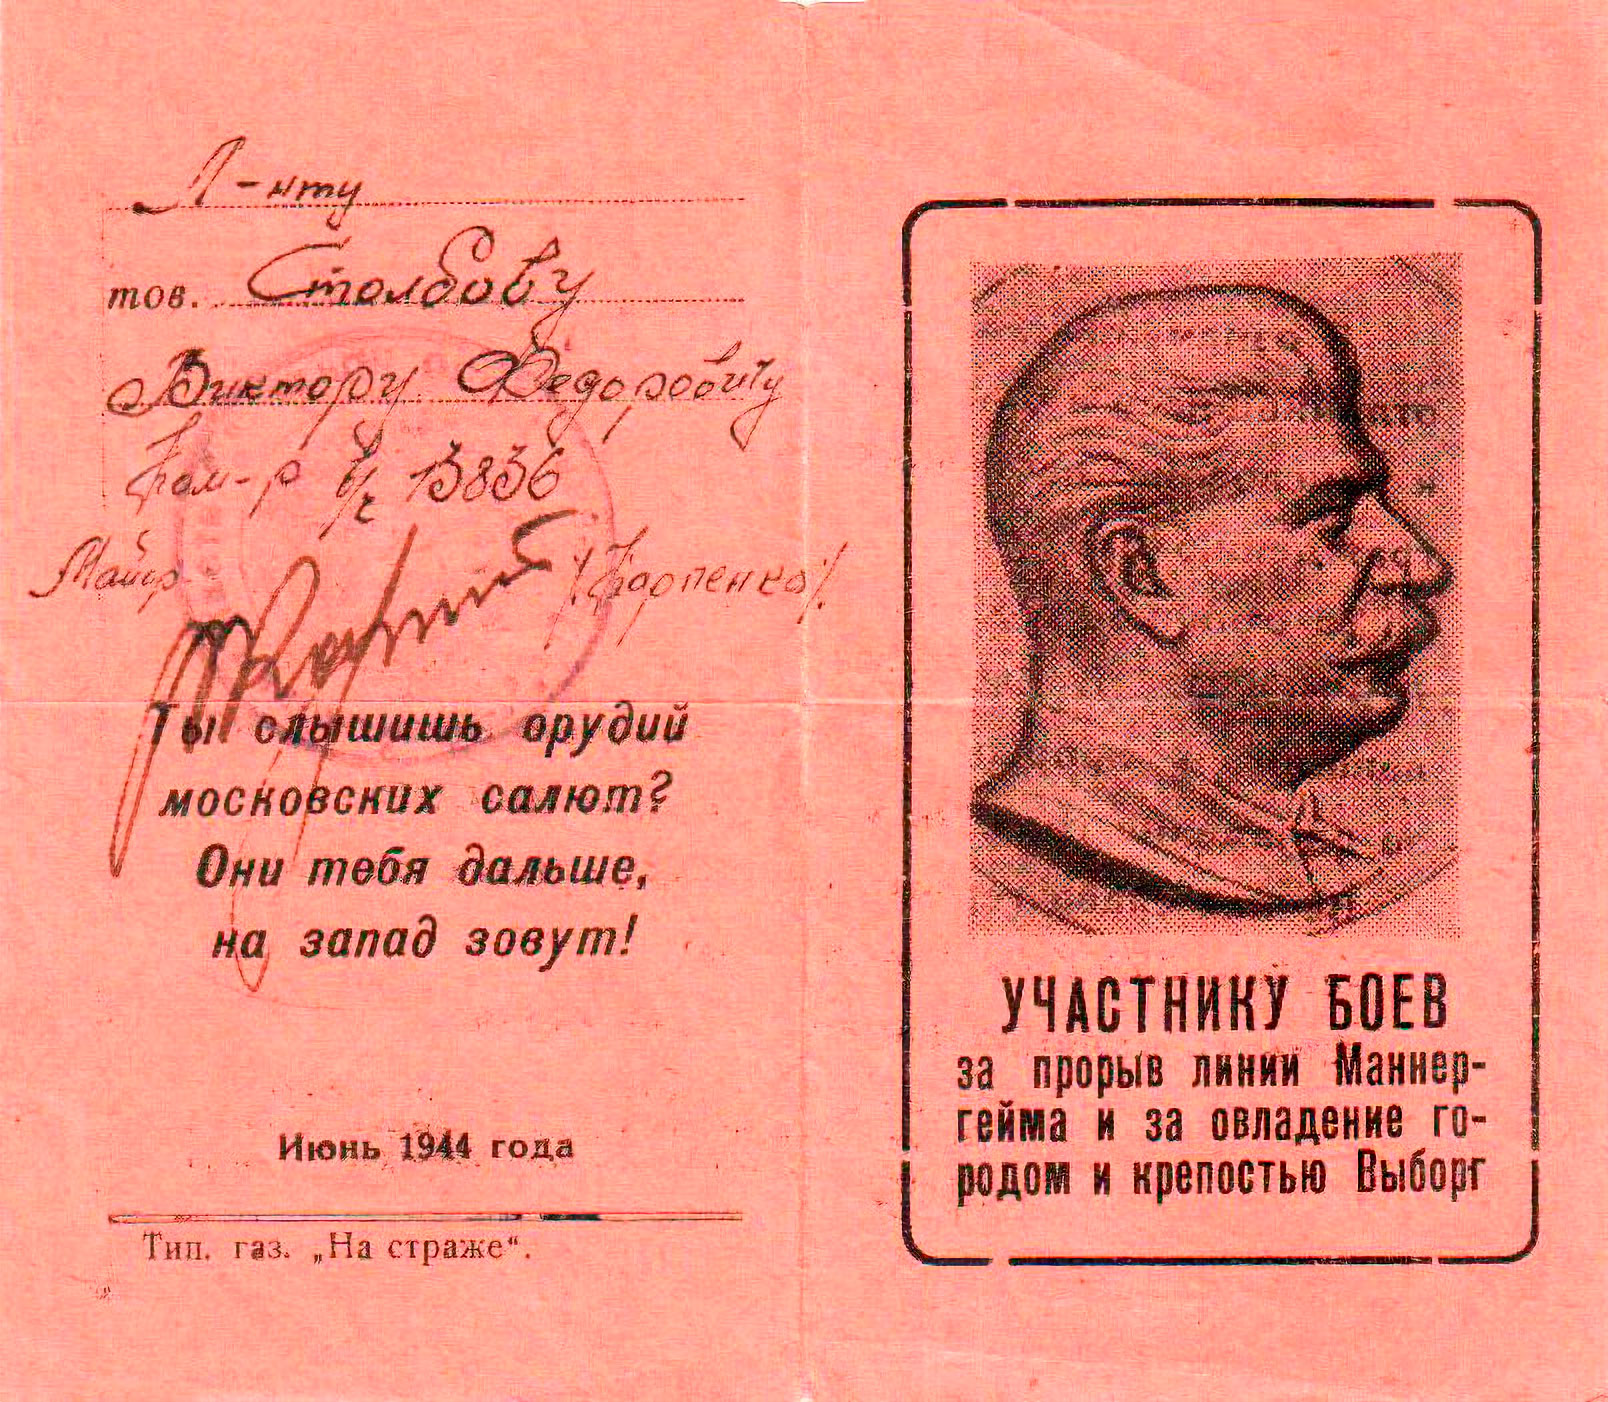 Л-нту
тов. Столбову
Виктору Федоровичу
Ком-р в/ч 13836
Майор /Карпенко/
Ты слышишь орудий
московских салют?
Они тебя дальше,
на запад зовут!
Июнь 1944 года
Тип. газ. „На страже“.
УЧАСТНИКУ БОЕВ
за прорыв линии Маннер-
гейма и за овладение го-
родом и крепостью Выборг